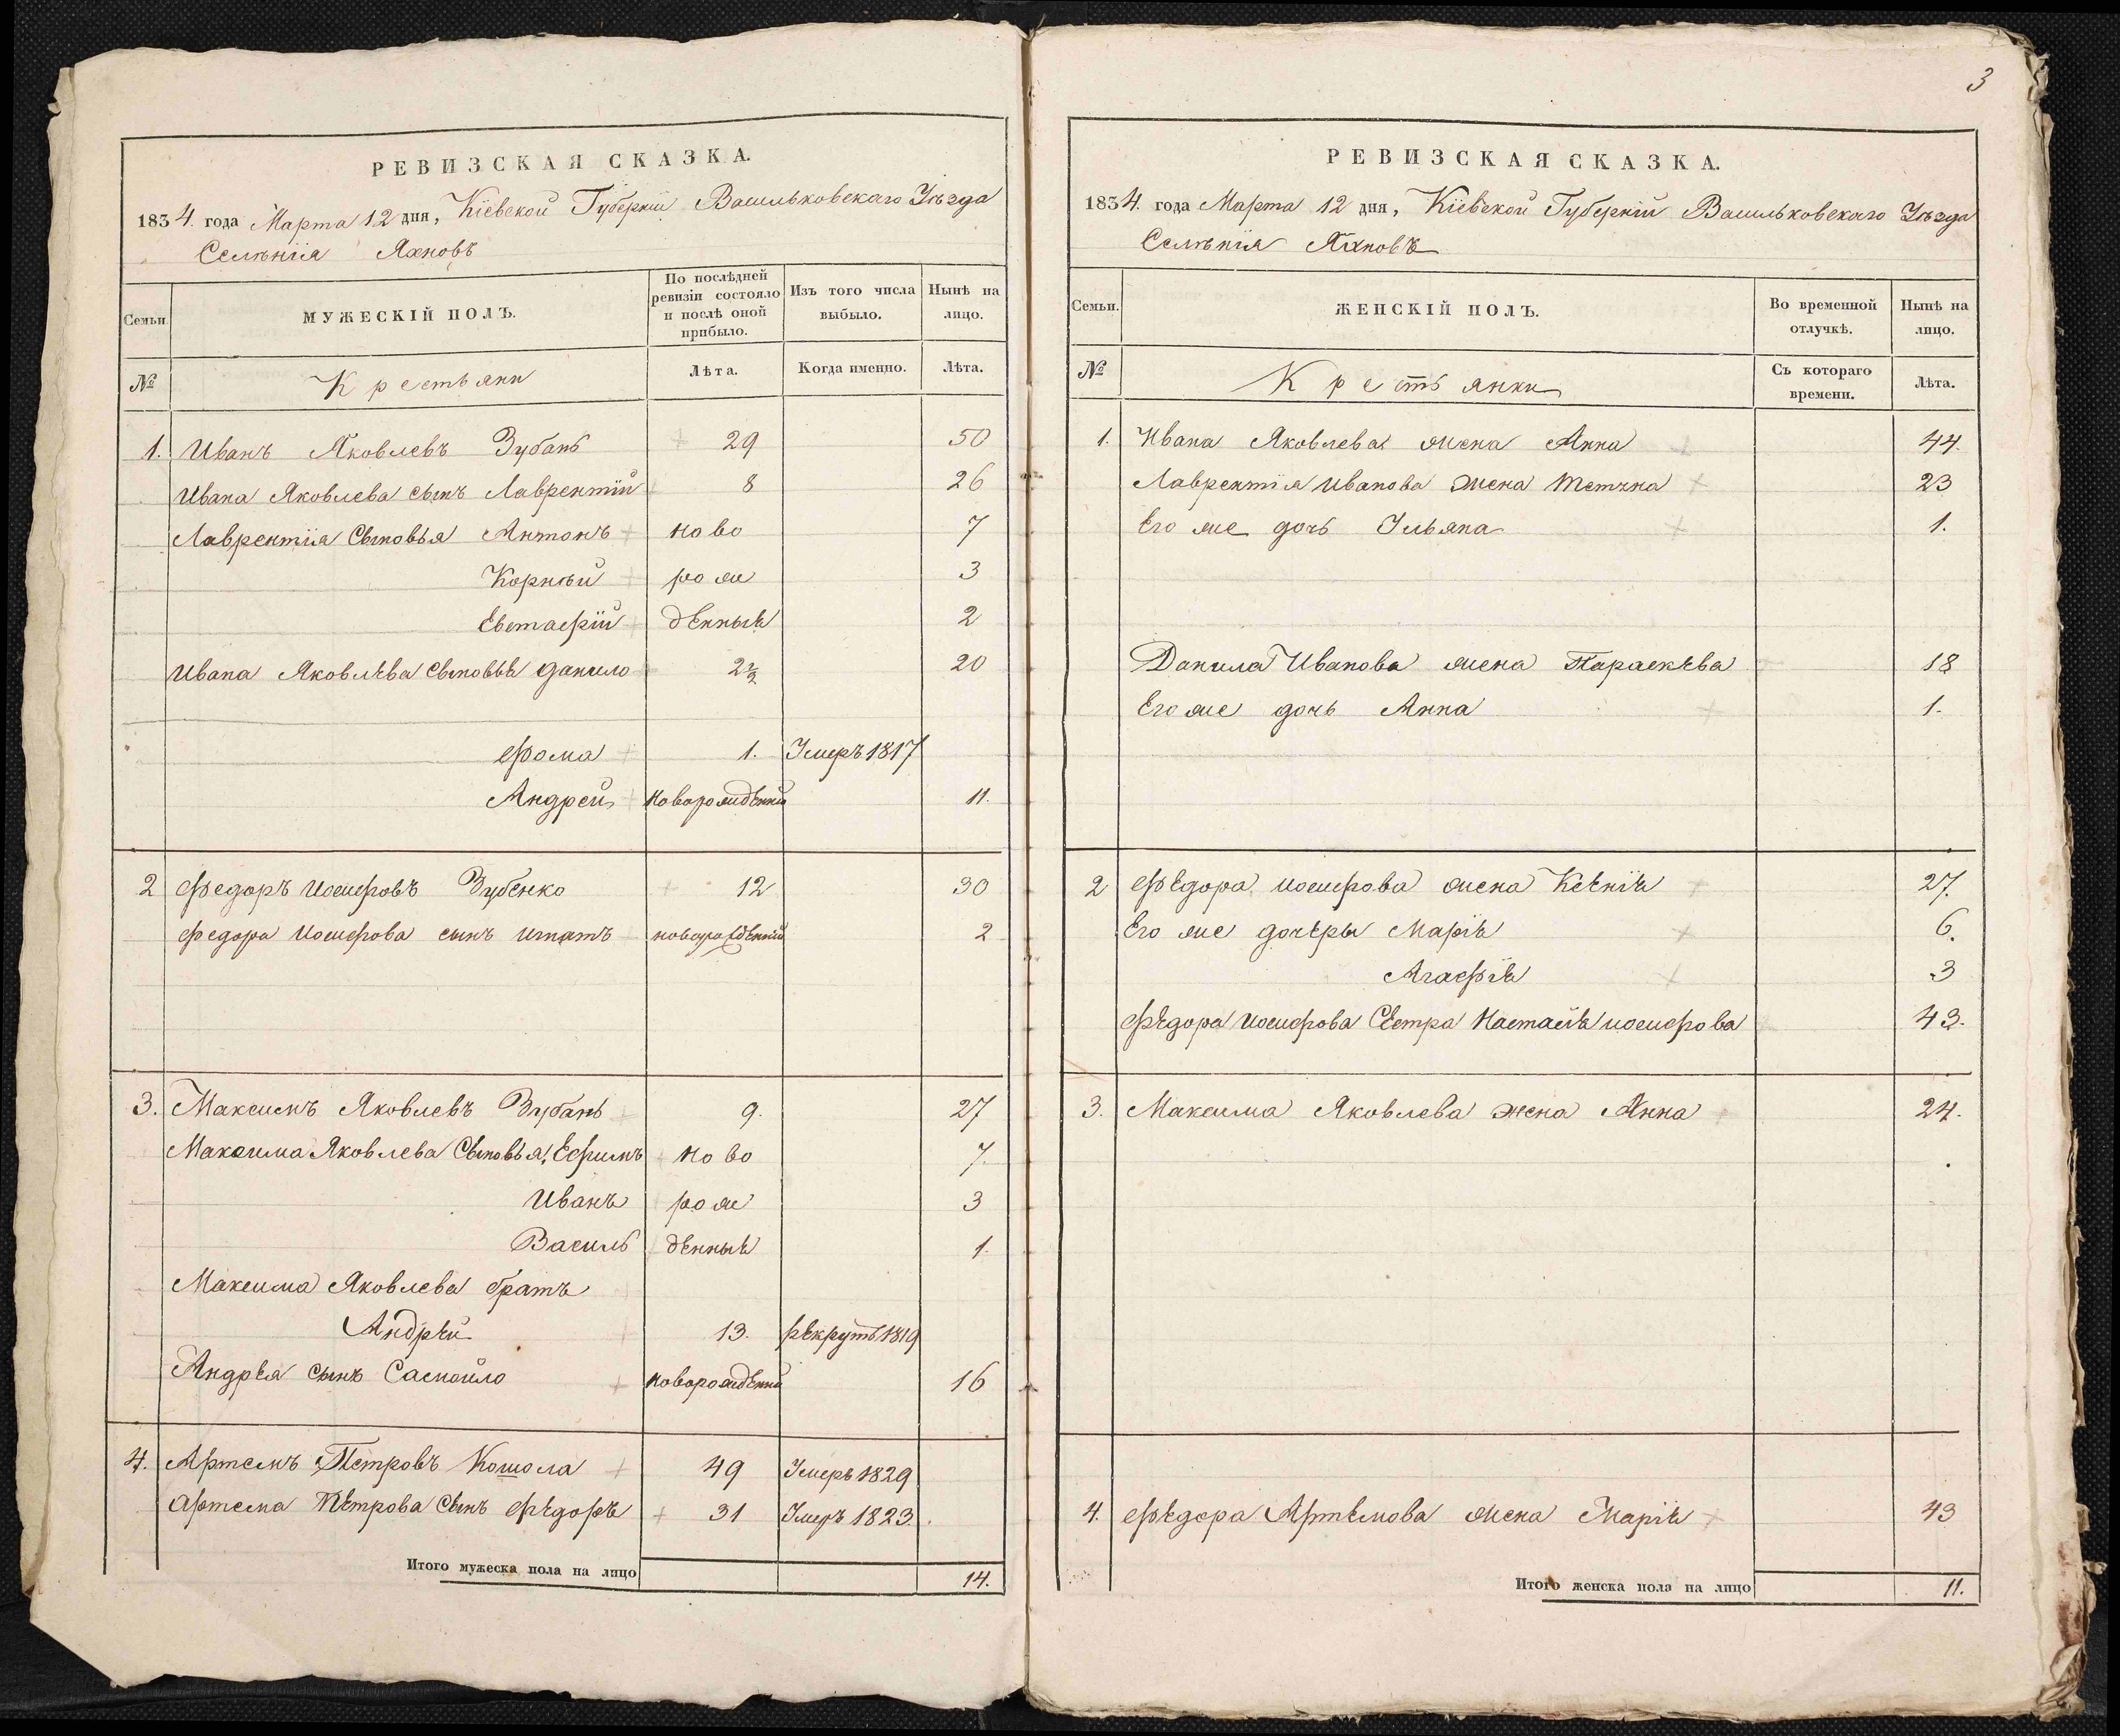 РЕВИЗСКАЯ СКАЗКА.
1834. года Марта 12 дня, Кіевской Губерніи Васильковскаго Уѣзда
Селѣнія Яхновъ
Семьи. МУЖЕСКІЙ ПОЛЪ. По послѣдней ревизіи состояло и послѣ оной прибыло. Изъ того числа выбыло. Нынѣ на лицо.
№ Крестьяни Лѣта. Когда именно. Лѣта.
1. Иванъ Яковлевъ Зубань 29 50
Ивана Яковлева сынъ Лаврентій 8 26
Лаврентія Сыновья Антонъ ново 7
Корнѣй рож 3
Евстафій дѣнныѣ 2
Ивана Яковлѣва сыновьѣ Данило 2½ 20
Фома 1. Умеръ 1817
Андрей новорождѣнній 11.
2 Федоръ Иосифовъ Зубенко 12 30
Федора Иосифова сынъ Игнатъ новорождѣнній 2
3. Максимъ Яковлевъ Зубань 9. 27
Максима Яковлева Сыновья, Ефимъ ново 7.
Иванъ рож 3
Василь дѣнныѣ 1.
Максима Яковлева братъ
Андрѣй 13. рѣкрутъ 1819
Андрѣя сынъ Самойло новорождѣнній 16
4. Артемъ Петровъ Кошола 49 Умеръ 1829
Артема Пѣтрова Сынъ Фѣдоръ 31 Умеръ 1823.
Итого мужеска пола на лицо 14.
3
РЕВИЗСКАЯ СКАЗКА.
1834. года Марта 12 дня, Кіевской Губерній Васильковскаго Уѣзда
Селѣнія Яхновъ
Семьи. ЖЕНСКІЙ ПОЛЪ. Во временной отлучкѣ. Нынѣ на лицо.
№ Крестьянки Съ котораго времени. Лѣта.
1. Ивана Яковлева жена Анна 44.
Лаврентія Иванова жена Тетяна 23
Его же дочь Ульяна 1.
Данила Иванова жена Параскѣва 18
Его же дочь Анна 1.
2 Фѣдора Иосифова жена Ксѣніѣ 27.
Его же дочѣры Маріѣ 6.
Агафіѣ 3
Фѣдора Иосифова Сѣстра Настасіѣ иосифова 43.
3. Максима Яковлева жена Анна 24.
4. Фѣдора Артѣмова жена Маріѣ 43
Итого женска пола на лицо 11.